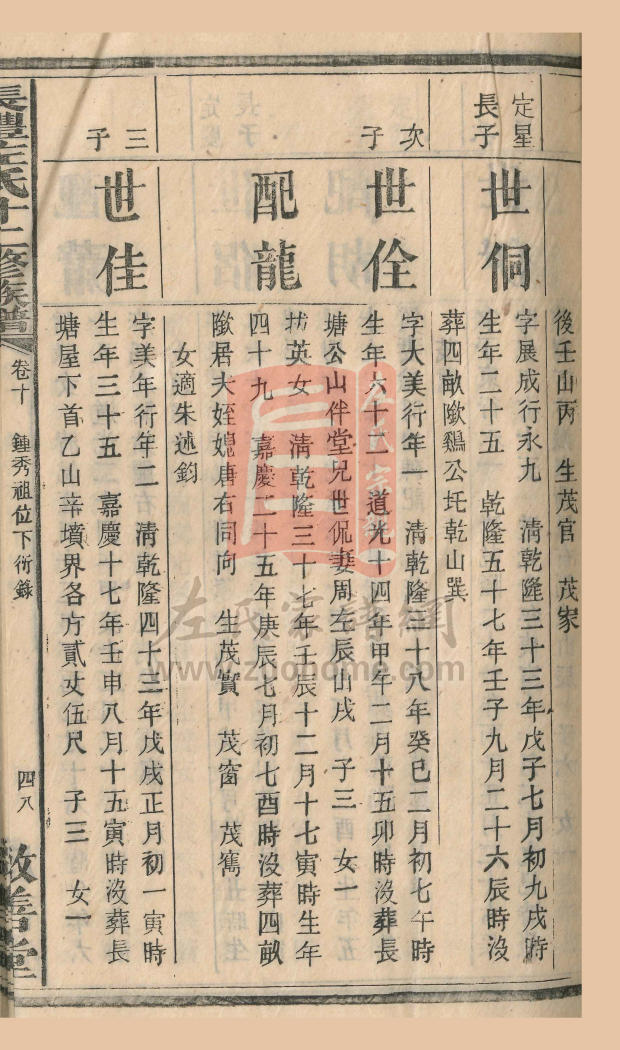 後壬山丙　生茂官　茂家
定星
長子
世侗
字展成行永九　清乾隆三十三年戊子七月初九戌時
生年二十五　乾隆五十七年壬子九月二十六辰時沒
葬四畝歟鷄公圫乾山巽
次子
世佺
字大美行年一　清乾隆三十八年癸巳二月初七午時
生年六十二　道光十四年甲午二月十五卯時沒葬長
塘公山伴堂兄世侃妻周左辰山戌　子三　女一
配龍
拔英女　清乾隆三十七年壬辰十二月十七寅時生年
四十九　嘉慶二十五年庚辰七月初七酉時沒葬四畝
歟居大姪媳唐右同向　生茂實　茂窗　茂寯
女適朱述鈞
三子
世佳
字美年行年二　清乾隆四十三年戊戌正月初一寅時
生年三十五　嘉慶十七年壬申八月十五寅時沒葬長
塘屋下首乙山辛墳界各方貳丈伍尺　子三　女一
長澧左氏十二修族譜
卷十　鍾秀祖位下衍錄
四八
敬善堂
左氏家譜網
www.zgohome.com